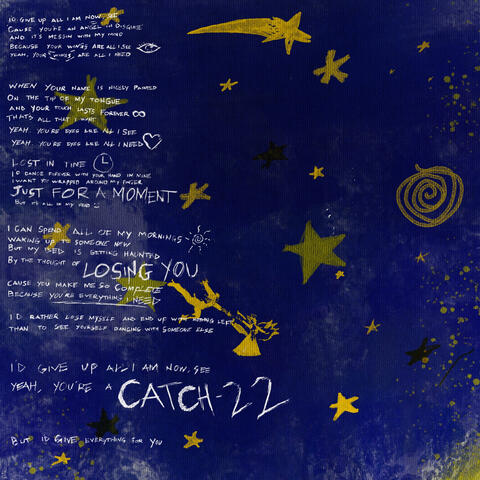 ID GIVE UP ALL I AM NOW, SEE
CAUSE YOU'RE AN ANGEL IN DISGUISE
AND IT'S MESSIN WITH MY MIND
BECAUSE YOUR WINGS ARE ALL I SEE
YEAH, YOUR WINGS ARE ALL I NEED
WHEN YOUR NAME IS NICELY PLACED
ON THE TIP OF MY TONGUE
AND YOUR TOUCH LASTS FOREVER ∞
THATS ALL THAT I WANT
YEAH, YOU'RE EYES ARE ALL I SEE
YEAH, YOU'RE EYES ARE ALL I NEED
LOST IN TIME
ID DANCE FOREVER WITH YOUR HAND IN MINE
I WANT TO WRAPPED AROUND MY FINGER
JUST FOR A MOMENT
BUT ITS ALL IN MY HEAD
I CAN SPEND ALL OF MY MORNINGS
WAKING UP TO SOMEONE NEW
BUT MY BED IS GETTING HAUNTED
BY THE THOUGHT OF LOSING YOU
CAUSE YOU MAKE ME SO COMPLETE
BECAUSE YOU'RE EVERYTHING I NEED
I'D RATHER LOSE MYSELF AND END UP WITH NOTHING LEFT
THAN TO SEE YOURSELF DANCING WITH SOMEONE ELSE
ID GIVE UP ALL I AM NOW, SEE
YEAH, YOU'RE A CATCH-22
BUT ID GIVE EVERYTHING FOR YOU